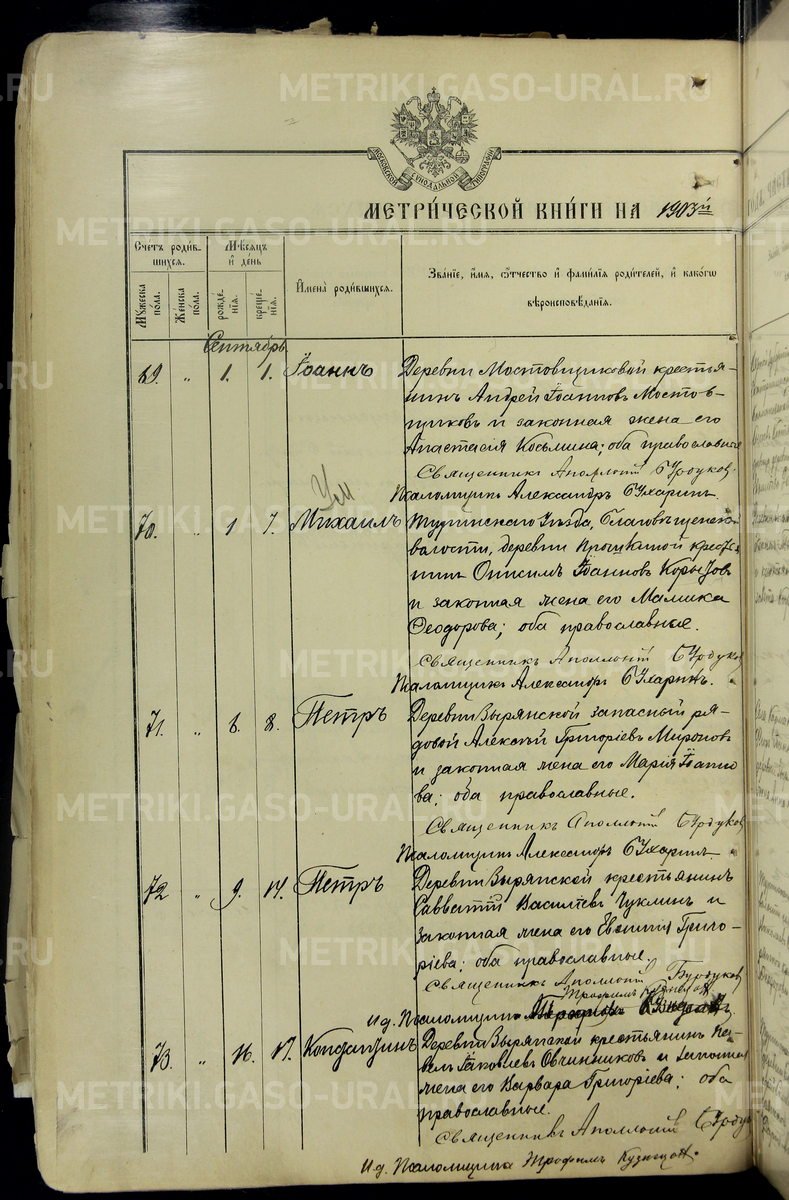 METRIKI.GASO-URAL.RU
МОСКОВСКОЙ СѴНОДАЛЬНОЙ ТИПОГРАФІИ
МЕТРИ́ЧЕСКОЙ КНИ́ГИ НА 1903й
Счетъ роди́вшихся.
Мѣ́сяцъ и́ де́нь
И҆мена̀ роди́вшихся.
Зва́нїе, и҆́мя, ѻ҆́тчество и҆ фами́лїѧ роди́телей, и҆ како́гѡ вѣроисповѣ́данїѧ.
Му́жеска по́ла.
Же́нска по́ла.
рожде́нїѧ.
креще́нїѧ.
Сентябрь
69. „ 1. 1. Іоаннъ Деревни Мостовщиковой крестья-
нинъ Андрей Іоанновъ Мостов-
щиковъ и законная жена его
Анастасія Косьмина; оба православные
Священникъ Аполлоній Бурдуков
Псаломщикъ Александръ Бухаринъ.
Ум
70. „ 1 7. Михаилъ Туринскаго Уѣзда, Благовѣщенской
волости, деревни крестья-
нинъ Онисимъ Іоанновъ
и законная жена его
Феодорова; оба православные.
Священникъ Аполлоній Бурдуков
Псаломщикъ Александръ Бухаринъ.
71. „ 6. 8. Петръ Деревни Зырянской запасный ря-
довой Алексѣй Григоріевъ Мироновъ
и законная жена его Марія Іоанно-
ва; оба православные.
Священникъ Аполлоній Бурдуков
Псаломщикъ Александръ Бухаринъ.
72 „ 9. 14. Петръ Деревни Зырянской крестьянинъ
Савватій Василіевъ Чуклинъ и
законная жена его Евгенія Григо-
ріева; оба православные.
Священникъ Аполлоній Бурдуков
Трофимъ Кузнецовъ
И.д. Псаломщика
73. „ 16. 17. Константинъ Деревни Зырянской крестьянинъ Па-
велъ Іаковлевъ Овчинниковъ и законная
жена его Варвара Григоріева; оба
православные.
Священникъ Аполлоній Бурдук
И.д. Псаломщика Трофимъ Кузнецовъ.